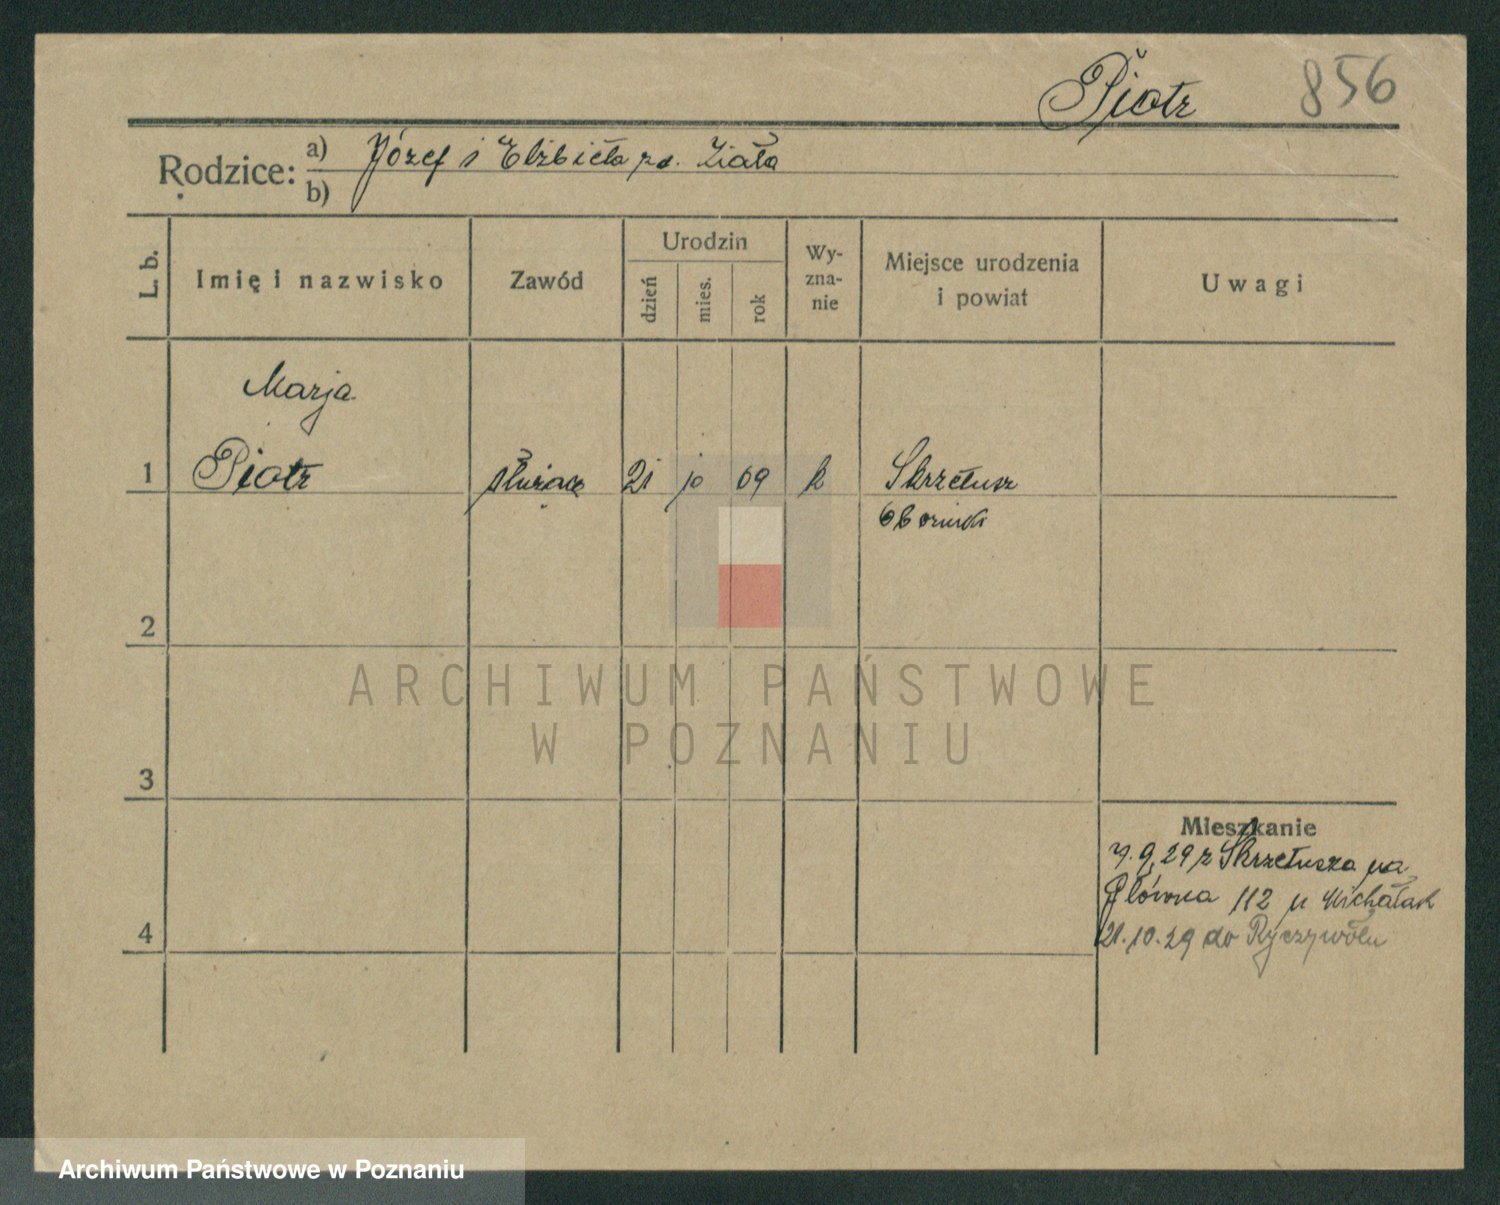 Piotr 856
Rodzice: a) Józef i Elżbieta zd. Ziała
b)
L. b. Imię i nazwisko Zawód Urodzin dzień mies. rok Wy-zna-nie Miejsce urodzenia i powiat Uwagi
Marja
1 Piotr służąca 21 10 09 k Skrzetusz
obornicki
2
ARCHIWUM PAŃSTWOWE
W POZNANIU
3
Mieszkanie
7.9.29 z Skrzetusza na
Główna 112 u Michalak
4 21.10.29 do Ryczywołu
Archiwum Państwowe w Poznaniu